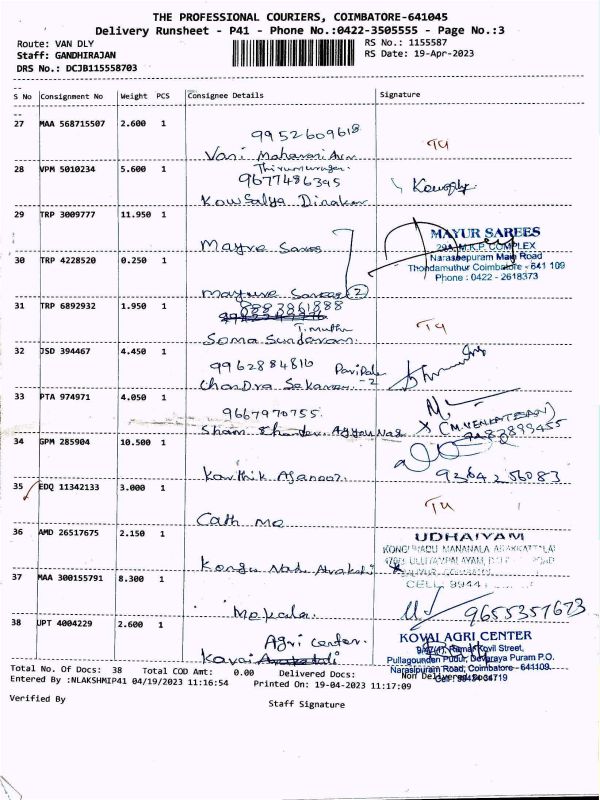 THE PROFESSIONAL COURIERS, COIMBATORE-641045
Delivery Runsheet - P41 - Phone No.:0422-3505555 - Page No.:3
Route: VAN DLY
RS No.: 1155587
Staff: GANDHIRAJAN
RS Date: 19-Apr-2023
DRS No.: DCJB115558703
S No Consignment No Weight PCS Consignee Details Signature
27 MAA 568715507 2.600 1
9952609618
Vani
28 VPM 5010234 5.600 1
9677486395
Kowsalya Dinakar
29 TRP 3009777 11.950 1
MAYUR SAREES
29A, M.K.P. COMPLEX
Naraseepuram Main Road
Thondamuthur Coimbatore - 641 109
Phone : 0422 - 2618373
Mayre Sarees
30 TRP 4228520 0.250 1
Mayure Sarees 2
31 TRP 6892932 1.950 1
8883861888
T. Muthu
Soma Sundaram.
32 JSD 394467 4.450 1
9962884816
Chandra Sekaran. -2
33 PTA 974971 4.050 1
9667970755
(M. VENKATESAN)
Sham
34 GPM 285904 10.500 1
9364256083
Karthik
35 EDQ 11342133 3.000 1
Cath Me
36 AMD 26517675 2.150 1
UDHAIYAM
CELL: 9944
Kongu Nadu
37 MAA 300155791 8.300 1
9655357673
Mekala.
38 UPT 4004229 2.600 1
Agri Center.
Kovai
KOVAI AGRI CENTER
9/47(4), Raman Kovil Street,
Pullagounden Pudur, Devaraya Puram P.O.
Narasipuram Road, Coimbatore - 641109.
Total No. Of Docs: 38 Total COD Amt: 0.00 Delivered Docs: Non Delivered Docs:
Entered By :NLAKSHMIP41 04/19/2023 11:16:54 Printed On: 19-04-2023 11:17:09
Verified By
Staff Signature